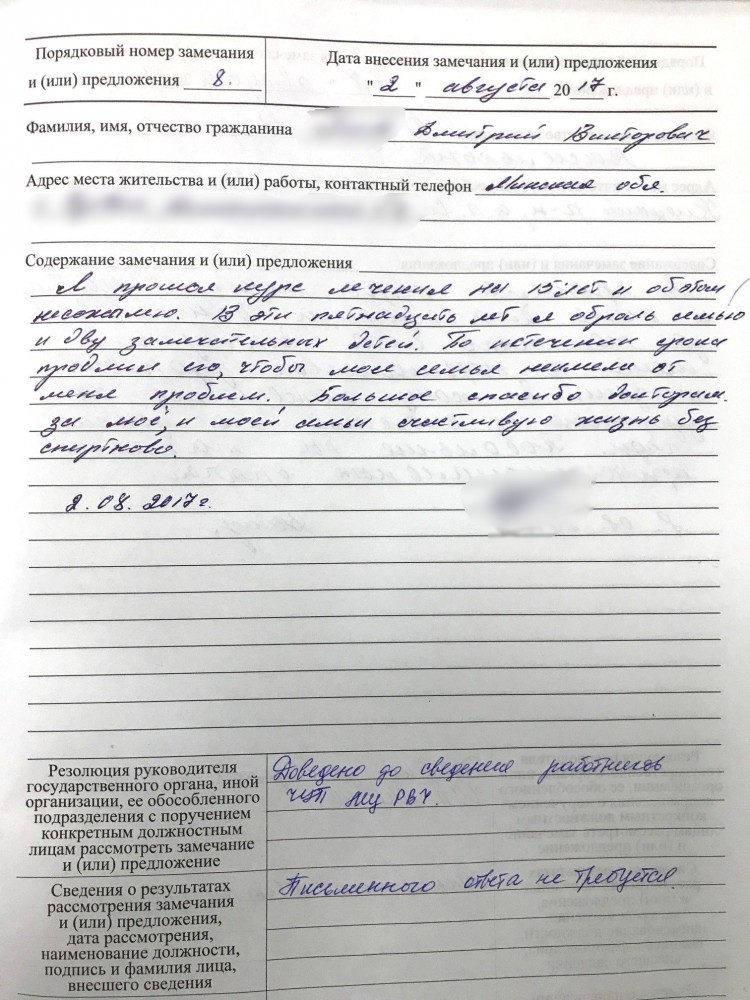 Порядковый номер замечания
и (или) предложения 8.
Дата внесения замечания и (или) предложения
"2" августа 2017 г.
Фамилия, имя, отчество гражданина Дмитрий Викторович
Адрес места жительства и (или) работы, контактный телефон Минская обл.
Содержание замечания и (или) предложения
Я прошел курс лечения на 15 лет и об этом
несожылею. В эти пятнадцать лет я обрёл семью
и дву замечательных детей. По истечении срока
продлил его, чтобы моя семья неимела от
меня проблем. Большое спасибо докторам.
за моё, и моей семьи счастливую жизнь без
спиртнова.
2.08.2017г.
Резолюция руководителя
государственного органа, иной
организации, ее обособленного
подразделения с поручением
конкретным должностным
лицам рассмотреть замечание
и (или) предложение
Доведено до сведения работников
МЦ РВЧ.
Сведения о результатах
рассмотрения замечания
и (или) предложения,
дата рассмотрения,
наименование должности,
подпись и фамилия лица,
внесшего сведения
Письменного ответа не требуется.